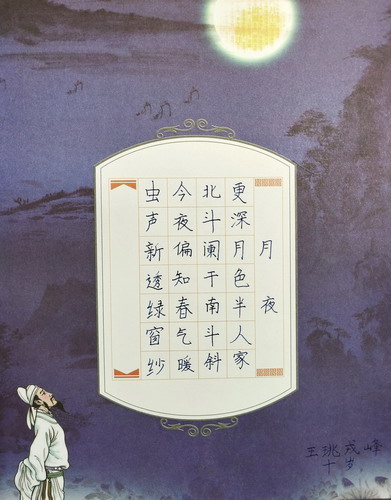 月夜
更深月色半人家
北斗阑干南斗斜
今夜偏知春气暖
虫声新透绿窗纱
王珧戎峰
十岁